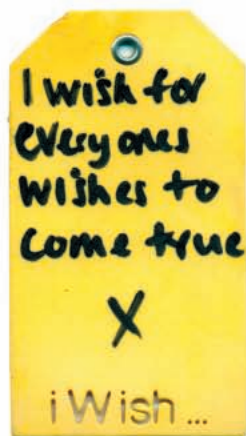 I wish for
everyones
wishes to
come true
X
iWish...